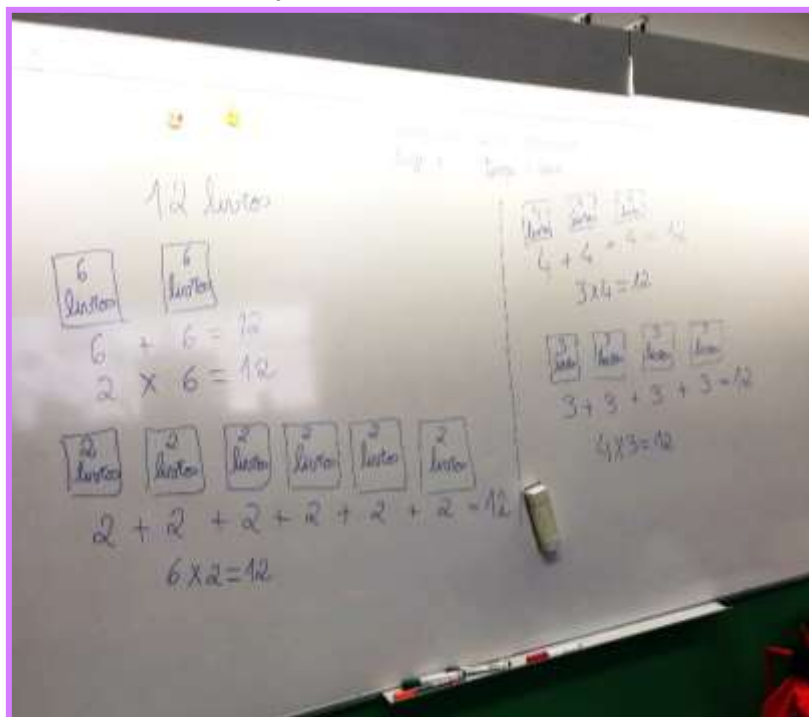 12 livros
6 6
livros livros
6 + 6 = 12
2 x 6 = 12
2 2 2 2 2 2
livros livros livros livros livros livros
2 + 2 + 2 + 2 + 2 + 2 = 12
6 x 2 = 12
livros livros livros
4 + 4 + 4 = 12
3x4=12
3 3 3 3
livros livros livros livros
3 + 3 + 3 + 3 = 12
4x3=12